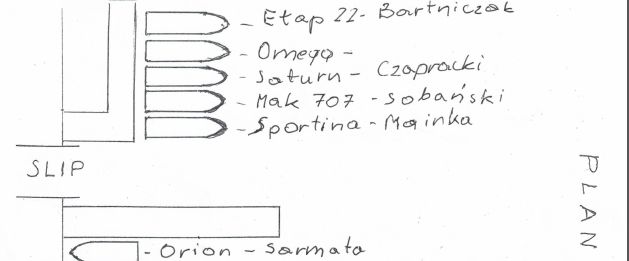 - Etap 22 - Bartniczak
- Omega -
- Saturn - Czapracki
- Mak 707 - Sobański
- Sportina - Mainka
SLIP
PLAN
- Orion - Sarmata